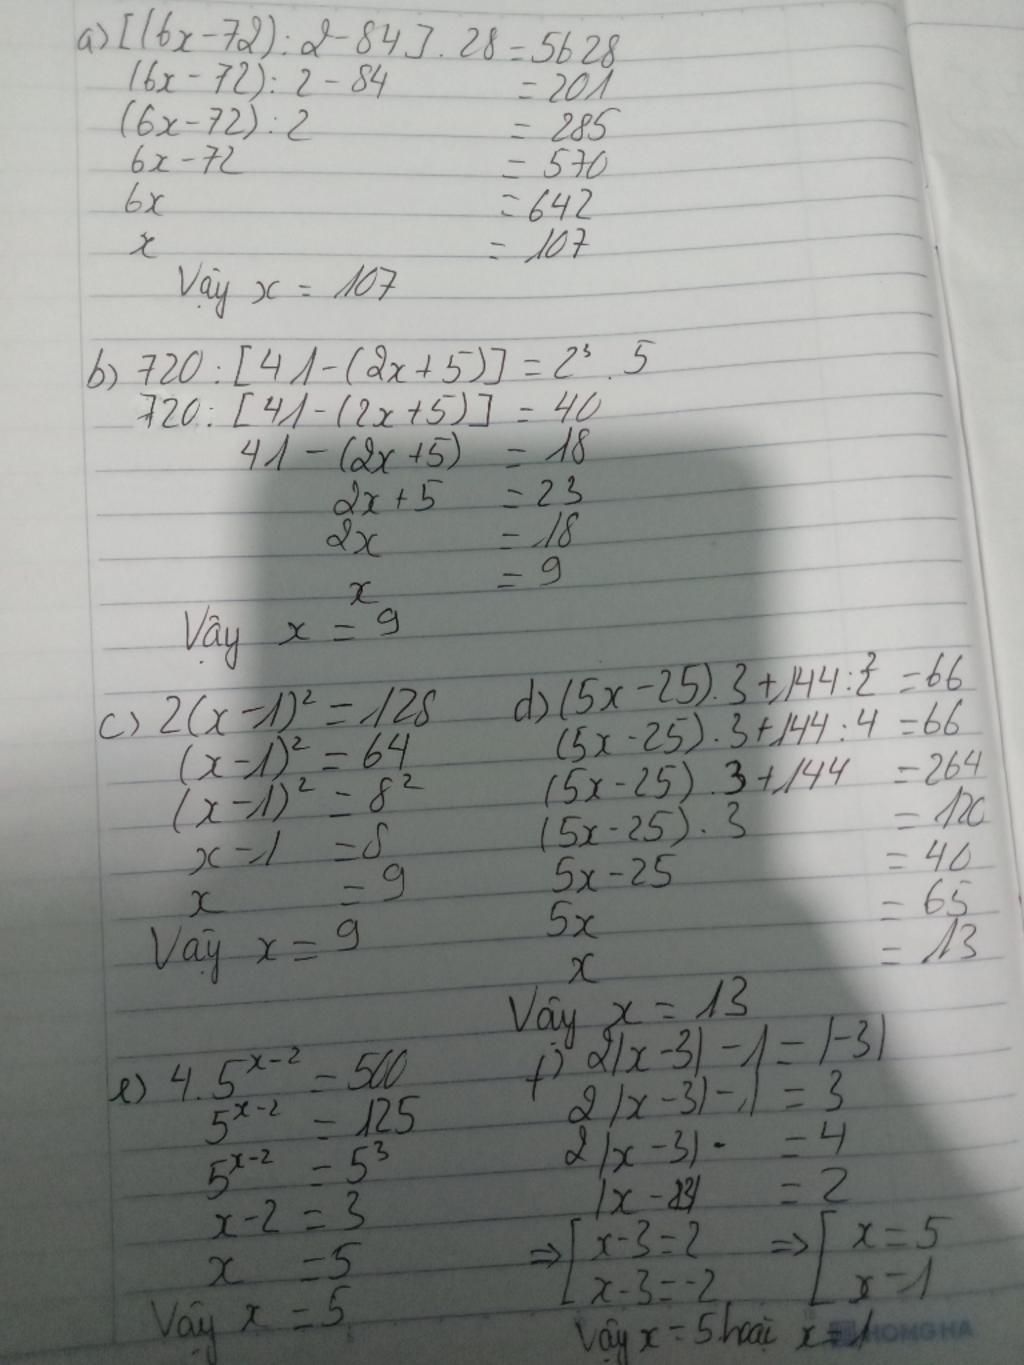 a) [(6x-72):2-84].28 = 5628
(6x-72):2-84 = 201
(6x-72):2 = 285
6x-72 = 570
6x = 642
x = 107
Vậy x = 107
b) 720:[41-(2x+5)] = 2³.5
720:[41-(2x+5)] = 40
41-(2x+5) = 18
2x+5 = 23
2x = 18
x = 9
Vậy x = 9
c) 2(x-1)² = 128
(x-1)² = 64
(x-1)² = 8²
x-1 = 8
x = 9
Vậy x = 9
d) (5x-25).3+144: = 66
(5x-25).3+144:4 = 66
(5x-25).3+144 = 264
(5x-25).3 = 120
5x-25 = 40
5x = 65
x = 13
Vậy x = 13
e) 4.5ˣ⁻² = 500
5ˣ⁻² = 125
5ˣ⁻² = 5³
x-2 = 3
x = 5
Vậy x = 5
f) 2|x-3|-1 = |-3|
2|x-3|-1 = 3
2|x-3| = 4
|x-3| = 2
⇒ [ x-3=2 ⇒ [ x=5
x-3=-2 x=1
Vậy x = 5 hoặc x = 1
HONG HA